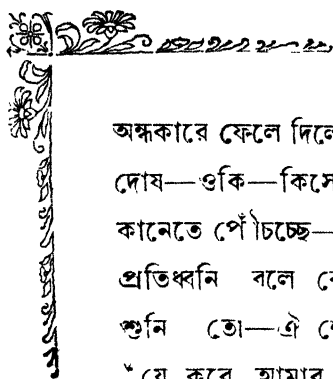 অন্ধকারে ফেলে দিলে
দোষ—ওকি—কিসে
কানেতে পৌঁচচ্ছে—
প্রতিধ্বনি বলে
শুনি তো—ঐ
যে করে আমার